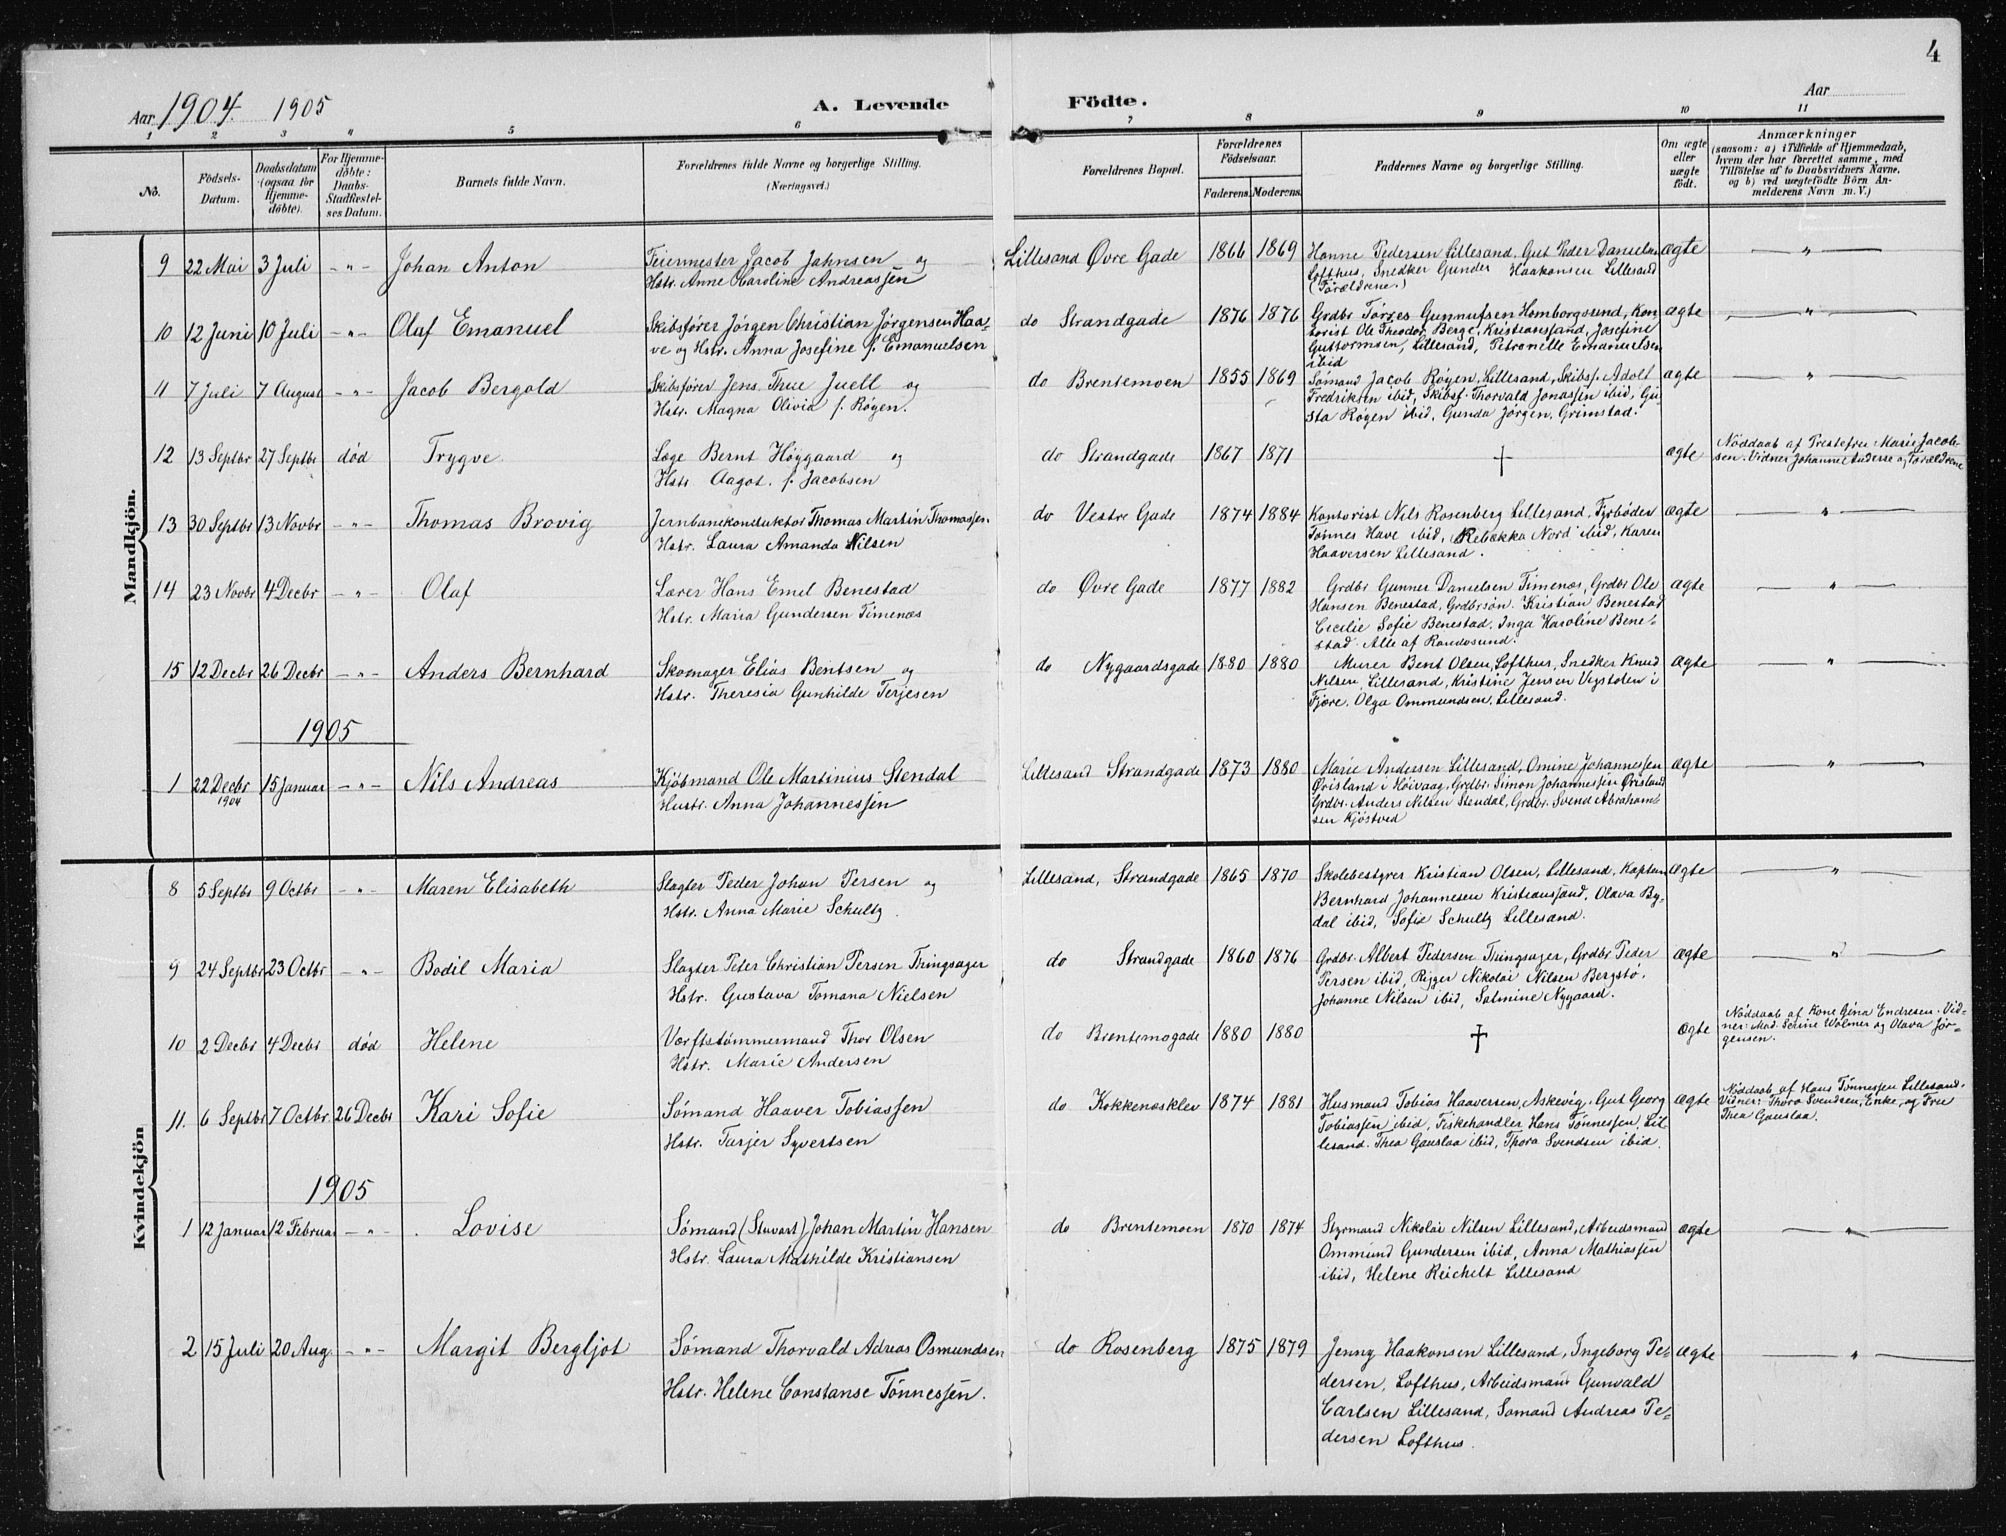 4
Aar 1904. 1905
A. Levende Födte.
Aar
1 2 3 " 5 6 7 8 9 10 11
No.
Födsels-Datum.
Daabsdatum (ogsaa for Hjemmedöbte).
For Hjemmedöbte: Daabs-Stadfæstelses Datum.
Barnets fulde Navn.
Forældrenes fulde Navne og borgerlige Stilling. (Næringsvei.)
Forældrenes Bopæl.
Forældrenes Födselsaar.
Faderens. Moderens.
Faddernes Navne og borgerlige Stilling.
Om ægte eller uægte födt.
Anmærkninger
(saasom: a) i Tilfælde af Hjemmedaab, hvem der har forrettet samme, med Tilföielse af to Daabsvidners Navne, og b) ved uægtefödte Börn Anmelderens Navn m. V.)
Mandkjön.
9 22 Mai 3 Juli -"- Johan Anton Feiermester Jacob Jahnsen og Lillesand Øvre Gade 1866 1869 Hanne Pedersen Lillesand, Gut Peder Danielsen ægte "
Hstr. Anne Karoline Andreassen Lofthus, Snedker Gunder Haakonsen Lillesand
(Forældrene.)
10 12 Juni 10 Juli -"- Olaf Emanuel Skibsfører Jørgen Christian Jørgensen Haa- do Strandgade 1876 1876 Grdbr. Torres Gunnufsen Homborgsund, Kon- ægte "
ve og Hstr. Anna Josefine f. Emanuelsen torist Ole Theodor Berge, Kristianssand, Josefine
Guttormsen, Lillesand, Petronelle Emanuelsen
ibid
11 7 Juli 7 August -"- Jacob Bergold Skibsfører Jens Thue Juell og do Brentemoen 1855 1869 Sømand Jacob Røyen, Lillesand, Skibsf. Adolf ægte "
Hstr. Magna Olivia f. Røyen. Fredriksen ibid, Skibsf. Thorvald Jonassen ibid, Gu-
sta Røyen ibid, Gunda Jørgen. Grimstad.
12 13 Septbr 27 Septbr død Trygve. Læge Bernt Høygaard og do Strandgade 1867 1871 † ægte Nøddaab af Prestefrue Marie Jacob-
Hstr Aagot. f. Jacobsen sen. Vidner Johanne Anderse og Forældrene
13 30 Septbr 13 Novbr -"- Thomas Brovig Jernbanekonduktør Thomas Martin Thomassen. do Vestre Gade 1874 1884 Kontorist Nils Rosenberg Lillesand, Fyrbøder ægte "
Hstr. Laura Amanda Nilsen Tønnes Have ibid, Rebekka Nord ibid, Karen
Haaversen Lillesand.
14 23 Novbr 4 Decbr -"- Olaf Lærer Hans Emel Benestad do Øvre Gade 1877 1882 Grdbr Gunner Danielsen Timenæs, Grdbr Ole ægte "
Hstr. Maria Gundersen Timenæs Hansen Benestad, Grdbrsøn. Kristian Benestad
Cecilie Sofie Benestad. Inga Karoline Bene-
stad. Alle af Randøsund.
15 12 Decbr 26 Decbr -"- Anders Bernhard Skomager Elias Bentsen og do Nygaardsgade 1880 1880 Murer Bent Olsen, Lofthus, Snedker Knud ægte "
Hstr. Theresia Gunhilde Terjesen Nilsen, Lillesand, Kristine Jensen Vigstolen i
Fjære. Olga Ommundsen. Lillesand.
1905
1 22 Decbr 1904 15 Januar -"- Nils Andreas Kjøbmand Ole Martinius Stendal Lillesand Strandgade 1873 1880 Marie Andersen Lillesand, Omine Johannessen ægte "
Hustr. Anna JohannessenØrisland i Høivaag, Grdbr. Simon Johannessen Ørisland
Grdbr. Anders Nilsen Stendal, Grdbr. Svend Abraham-
sen Kjøstved
Kvindekjön
8 5 Septbr 9 Octbr -"- Maren Elisabeth Slagter Peder Johan Persen og Lillesand, Strandgade 1865 1870 Skolebestyrer Kristian Olsen, Lillesand, Kaptein ægte "
Hstr. Anna Marie Schultz. Bernhard Johannesen Kristianssand, Olava By-
dal ibid, Sofie Schultz Lillesand.
9 24 Septbr 23 Octbr -"- Bodil Maria Slagter Peter Christian Persen Thingsager do Strandgade 1860 1876 Grdbr. Albert Pedersen Thingsager, Grdbr. Peder ægte "
Hstr. Gustava Tomana Nielsen Persen ibid, Rigger Nikolai Nilsen Bergstø.
Johanne Nilsen ibid, Salmine Nygaard.
10 2 Decbr 4 Decbr død Helene Værftstømmermand Thor Olsen do Brentemogade 1880 1880 † ægte Nøddaab af Kone Gina Endresen. Vid-
Hstr. Marie Andersen ner: Mad. Serine Wolmer og Olava Jør-
gensen.
11. 6 Septbr 7 Octbr. 26 Decbr Kari Sofie Sømand Haaver Tobiassen do Kokkenæsklev 1874 1881 Husmand Tobias Haaversen, Askevig. Gut Georg ægte Nøddaab af Hans Tønnessen Lillesand.
Hstr. Tarjer Syvertsen Tobiassen ibid, Fiskehandler Hans Tønnessen, Lil- Vidner: Thora Svendsen, Enke, og Fru
lesand. Thea Gauslaa ibid, Thora Svendsen ibid. Thea Gauslaa.
1905
1 12 Januar 12 Februar -"- Lovise Sømand (Stuvart) Johan Martin Hansen do Brentemoen 1870 1874 Styrmand Nikolai Nilsen Lillesand, Arbeidsmand ægte "
Hstr. Laura Mathilde Kristiansen Ommund Gundersen ibid, Anna Mathiassen
ibid, Helene Reichelt Lillesand
2 15 Juli 20 Aug. -"- Margit Bergljot Sømand Thorvald Adreas Osmundsen do Rosenberg 1875 1879 Jenny Haakonsen Lillesand, Ingeborg Pe- ægte "
Hstr. Helene Constanse Tønnessen. dersen, Lofthus, Arbeidsmand Gunvald
Carlsen Lillesand, Sømand Andreas Pe-
dersen Lofthus.